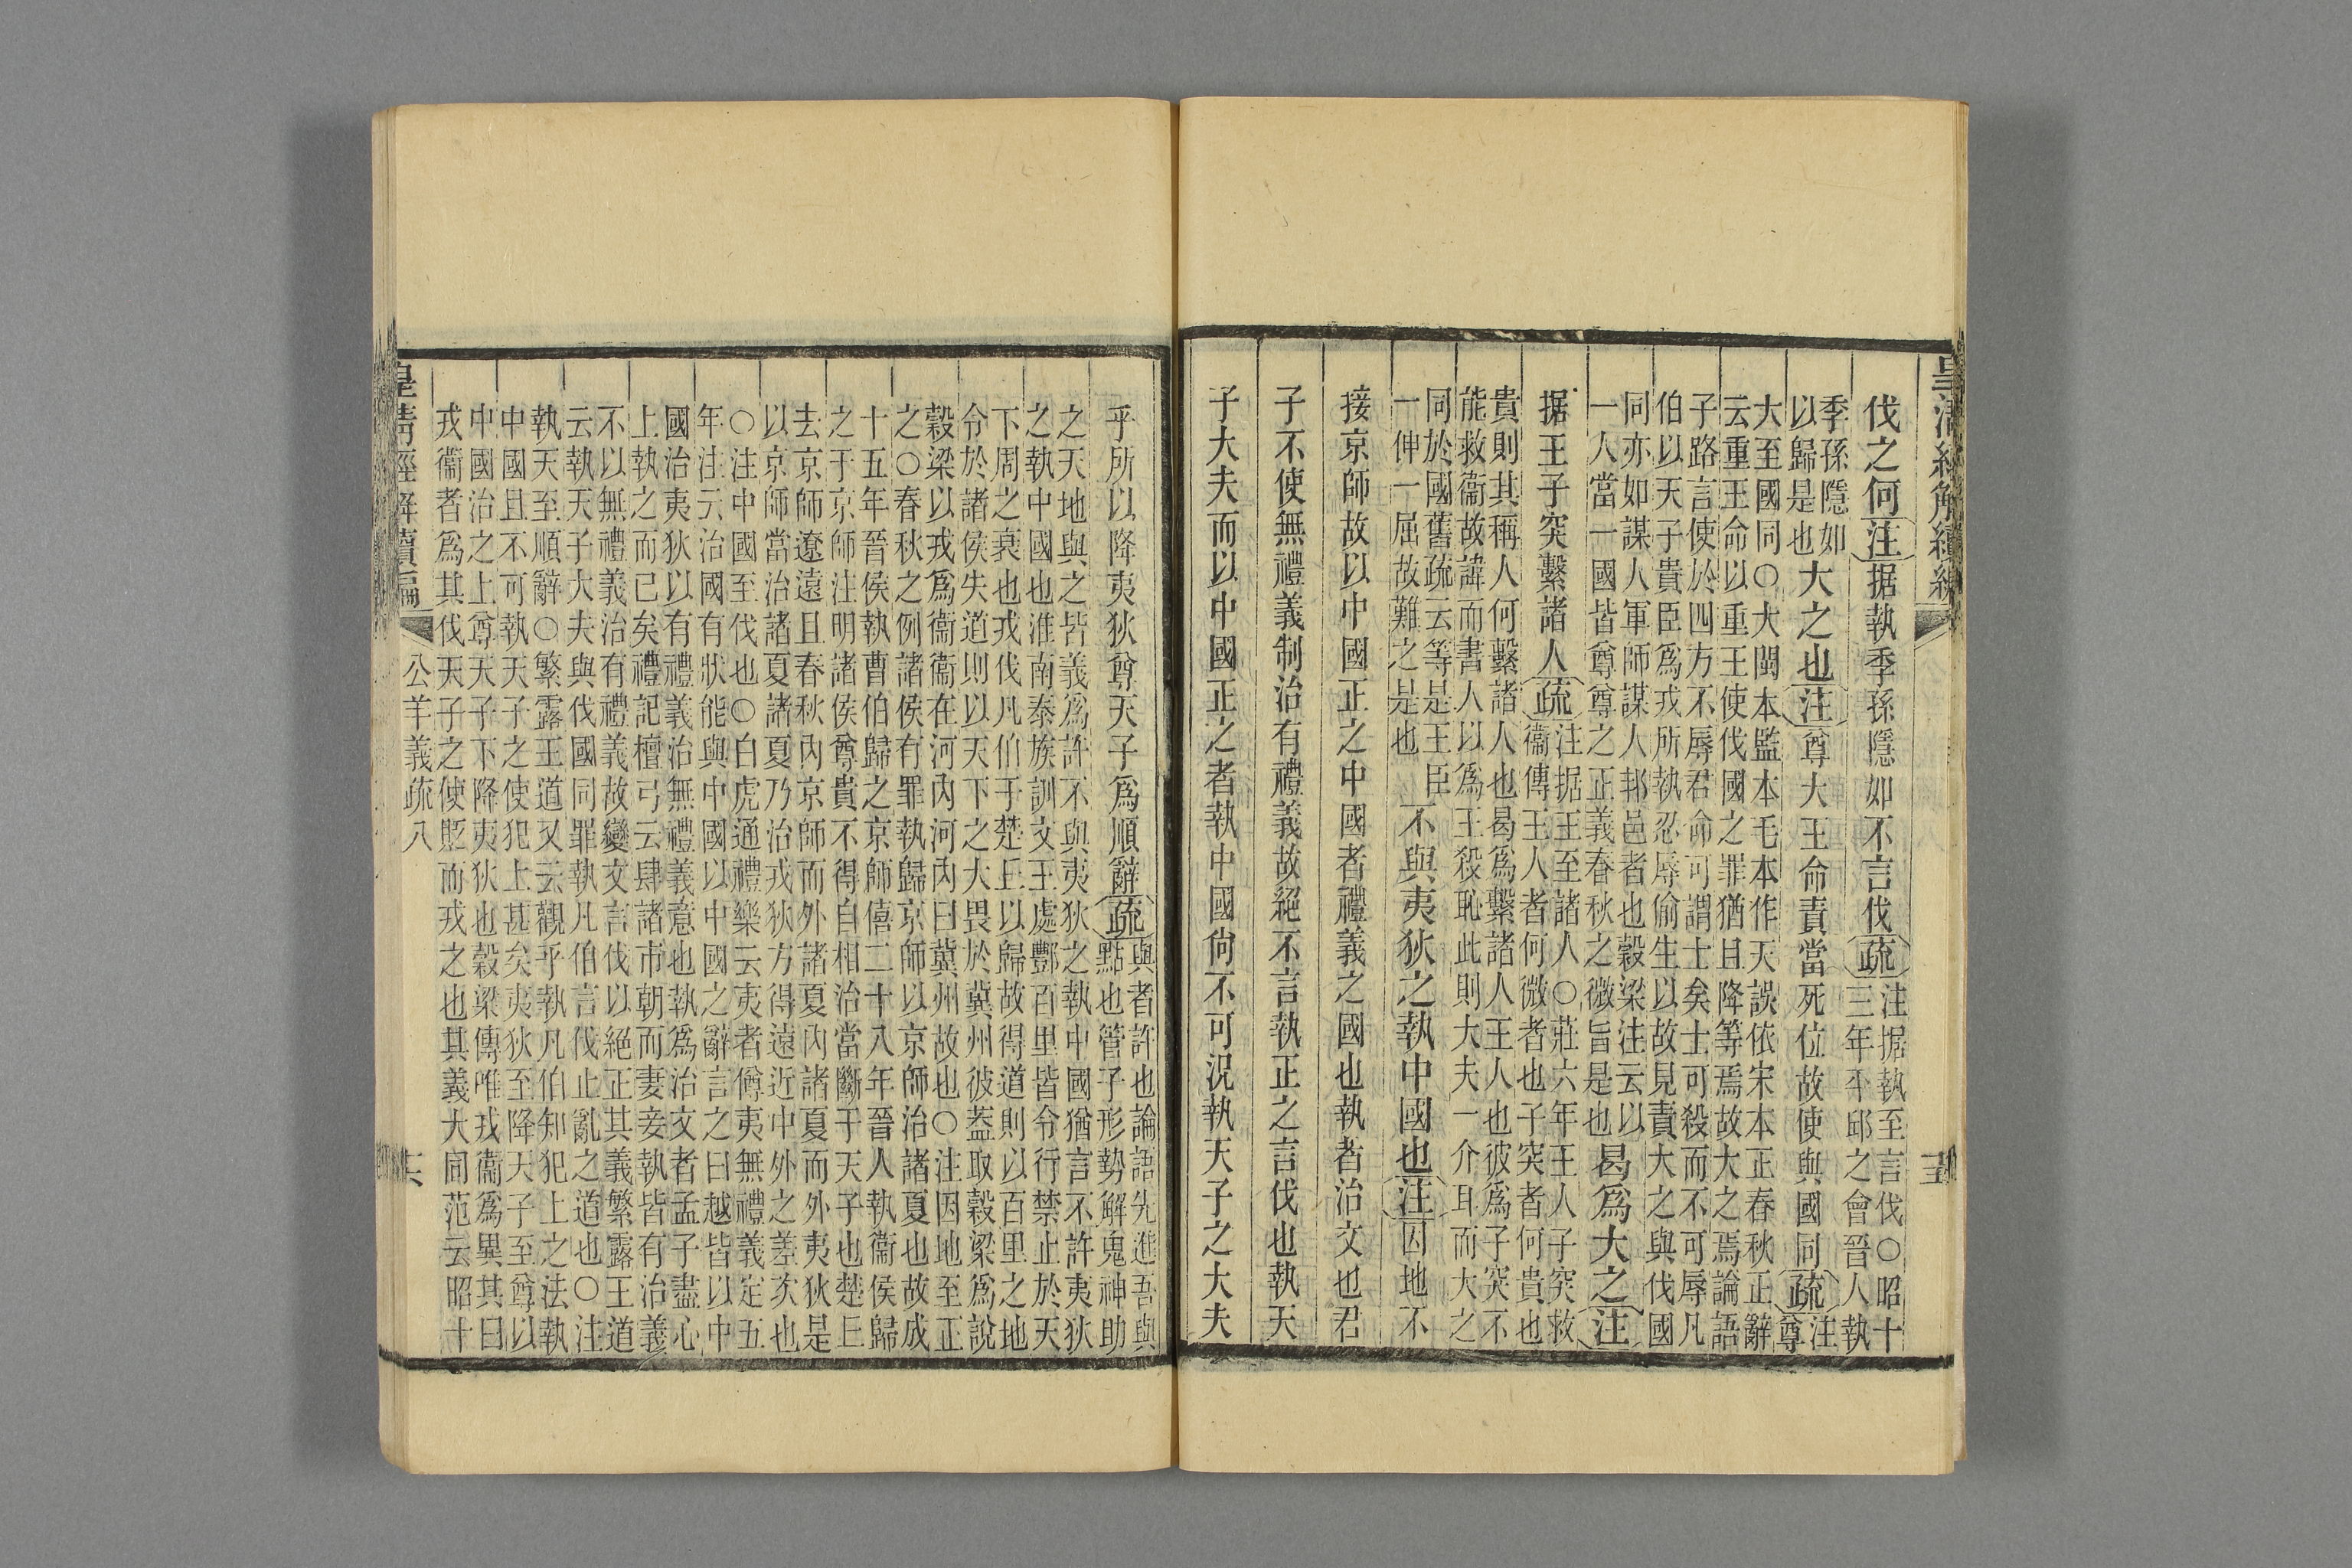 皇清經解續編
伐之何注据執季孫隱如不言伐疏注据執至言伐○昭十
三年平邱之會晉人執
季孫隱如
以歸是也大之也注尊大王命責當死位故使與國同疏注
尊
大至國同○大閩本監本毛本作天誤依宋本正春秋正辭
云重王命以重王使伐國之罪猶且降等焉故大之焉論語
子路言使於四方不辱君命可謂士矣士可殺而不可辱凡
伯以天子貴臣爲戎所執忍辱偷生以故見責大之與伐國
同亦如謀人軍師謀人邦邑者也穀梁注云以
一人當一國皆尊尊之正義春秋之微旨是也曷爲大之注
据王子突繫諸人疏注据王至諸人○莊六年王人子突救
衞傳王人者何微者也子突者何貴也
貴則其稱人何繫諸人也曷爲繫諸人王人也彼爲子突不
能救衞故諱而書人以爲王殺恥此則大夫一介耳而大之
同於國舊疏云等是王臣
一伸一屈故難之是也不與夷狄之執中國也注因地不
接京師故以中國正之中國者禮義之國也執者治文也君
子不使無禮義制治有禮義故絕不言執正之言伐也執天
子大夫而以中國正之者執中國尙不可況執天子之大夫
乎所以降夷狄尊天子爲順辭疏與者許也論語先進吾與
點也管子形勢解鬼神助
之天地與之皆義爲許不與夷狄之執中國猶言不許夷狄
之執中國也淮南泰族訓文王處酆百里皆令行禁止於天
下周之衰也戎伐凡伯于楚丘以歸故得道則以百里之地
令於諸侯失道則以天下之大畏於冀州彼蓋取穀梁爲說
穀梁以戎爲衞衞在河內河內曰冀州故也○注因地至正
之○春秋之例諸侯有罪執歸京師以京師治諸夏也故成
十五年晉侯執曹伯歸之京師僖二十八年晉人執衞侯歸
之于京師注明諸侯尊貴不得自相治當斷于天子也楚丘
去京師遼遠且春秋內京師而外諸夏內諸夏而外夷狄是
以京師當治諸夏諸夏乃治戎狄方得遠近中外之差次也
○注中國至伐也○白虎通禮樂云夷者僔夷無禮義定五
年注云治國有狀能與中國以中國之辭言之曰越皆以中
國治夷狄以有禮義治無禮義意也執爲治文者孟子盡心
上執之而已矣禮記檀弓云肆諸市朝而妻妾執皆有治義
不以無禮義治有禮義故變文言伐以絕正其義繁露王道
云執天子大夫與伐國同罪執凡伯言伐止亂之道也○注
執天至順辭○繁露王道又云觀乎執凡伯知犯上之法執
中國且不可執天子之使犯上甚矣夷狄至降天子至尊以
中國治之上尊天子下降夷狄也穀梁傳唯戎衞爲異其曰
戎衞者爲其伐天子之使貶而戎之也其義大同范云昭十
皇清經解續編 公羊義疏八